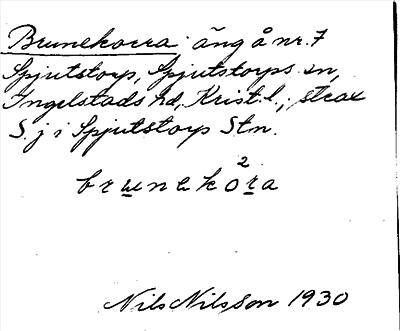 Brunekoera äng å nr. 7
Spjutstorp, Spjutstorps sn,
Ingelstads hd, Krist. l., strax
S. j i Spjutstorp Stn.
brunekò²ra
Nils Nilsson 1930